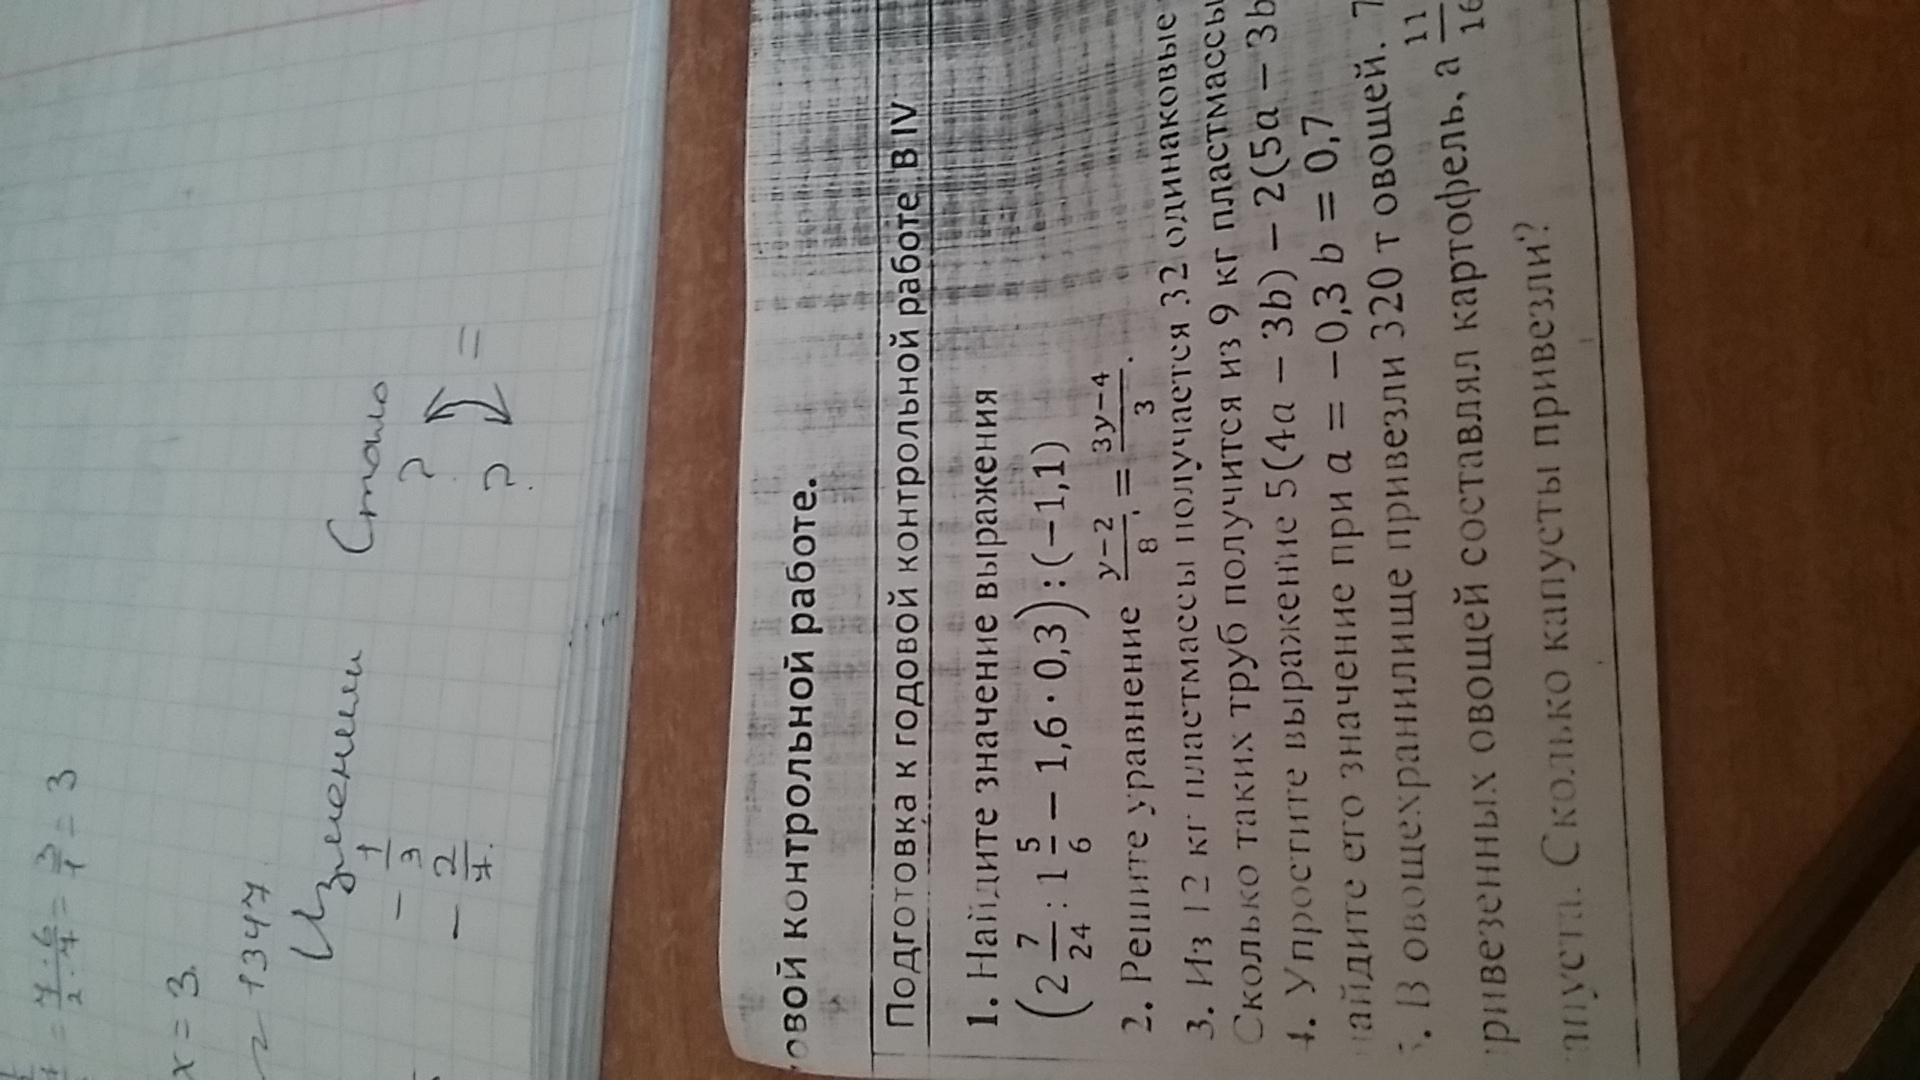 = 7·6/2·7 = 3/1 = 3
x = 3.
1347.
Изменили Стало
- 1/3 ?
- 2/7. ? =
овой контрольной работе.
Подготовка к годовой контрольной работе. В IV
1. Найдите значение выражения
(2 7/24 : 1 5/6 − 1,6 · 0,3) : (−1,1)
2. Решите уравнение y−2/8 = 3y−4/3.
3. Из 12 кг пластмассы получается 32 одинаковые
Сколько таких труб получится из 9 кг пластмассы
4. Упростите выражение 5(4a − 3b) − 2(5a − 3b
айдите его значение при a = −0,3 b = 0,7
. В овощехранилище привезли 320 т овощей. 7
ривезенных овощей составлял картофель, а 11/16
апуста. Сколько капусты привезли?